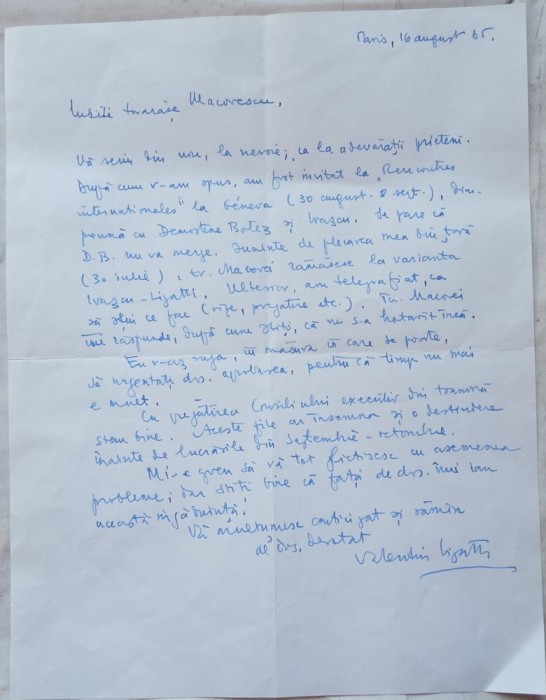 Paris, 16 august 65.
Iubite tovarășe Macovescu,
Vă scriu din nou, la nevoie, ca la adevărații prieteni.
După cum v-am spus, am fost invitat la „Rencontres
internationales" la Geneva (30 august - 8 sept.), îm-
preună cu Demostene Botez și Ivașcu. Se pare că
D.B. nu va merge. Înainte de plecarea mea din țară
(30 iulie), tv. Macovei rămăsese la varianta
Ivașcu-Lipatti. Ulterior, am telegrafiat, ca
să știu ce fac (vize, pregătire etc.). Tv. Macovei
îmi răspunde, după cum știți, că nu s-a hotărît încă.
Eu v-aș ruga, în măsura în care se poate,
să urgentați dvs. aprobarea, pentru că timp nu mai
e mult.
Cu pregătirea Consiliului executiv din toamnă
stau bine. Aceste zile ar însemna și o destindere
înainte de lucrările din Septembrie - octombrie.
Mi-e greu să vă tot plictisesc cu asemenea
probleme; dar știți bine că față de dvs. îmi iau
această îngăduință!
Vă mulțumesc anticipat și rămîn
al dvs. devotat
Valentin Lipatti